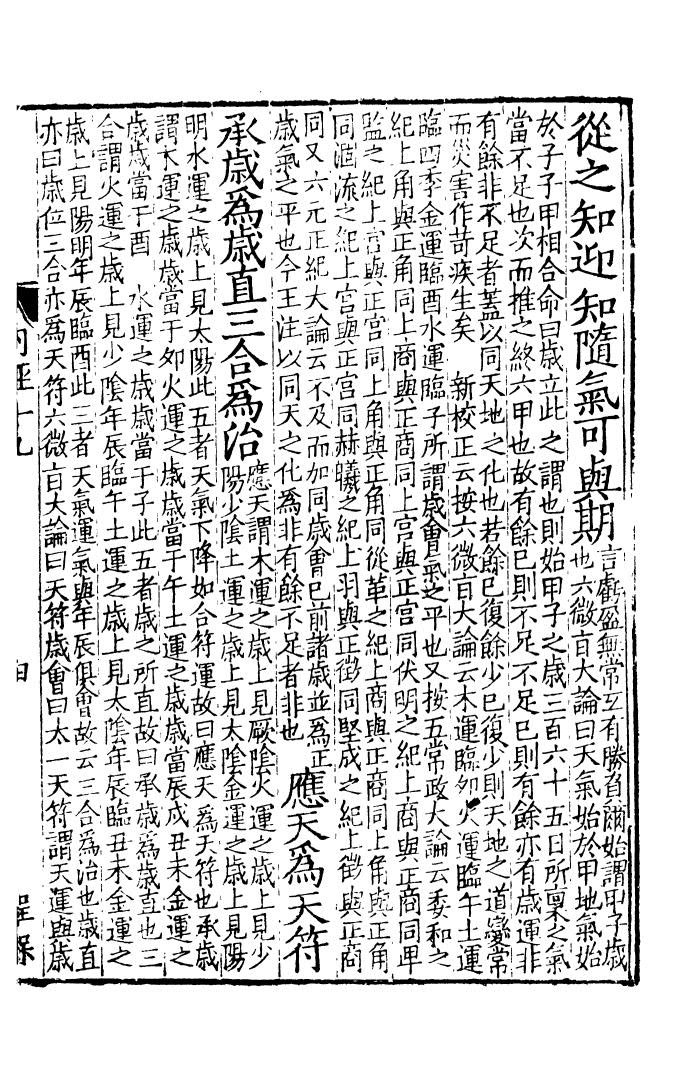 從之知迎知隨氣可與期
言虧盈無常互有勝負爾始謂甲子歲
也六微旨大論曰天氣始於甲地氣始
於子子甲相合命曰歲立此之謂也則始甲子之歲三百六十五日所稟之氣
當不足也次而推之終六甲也故有餘已則不足不足已則有餘亦有歲運非
有餘非不足者蓋以同天地之化也若餘已復餘少已復少則天地之道變常
而災害作苛疾生矣　新校正云按六微旨大論云木運臨卯火運臨午土運
臨四季金運臨酉水運臨子所謂歲會氣之平也又按五常政大論云委和之
紀上角與正角同上商與正商同上宮與正宮同伏明之紀上商與正商同卑
監之紀上宮與正宮同上角與正角同從革之紀上商與正商同上角與正角
同涸流之紀上宮與正宮同赫曦之紀上羽與正徵同堅成之紀上徵與正商
同又六元正紀大論云不及而加同歲會已前諸歲並為正
歲氣之平也今王注以同天之化為非有餘不足者非也
應天為天符
承歲為歲直三合為治
應天謂木運之歲上見厥陰火運之歲上見少
陽少陰土運之歲上見太陰金運之歲上見陽
明水運之歲上見太陽此五者天氣下降如合符運故曰應天為天符也承歲
謂木運之歲歲當于卯火運之歲歲當于午土運之歲歲當辰戌丑未金運之
歲歲當于酉　水運之歲歲當于子此五者歲之所直故曰承歲為歲直也三
合謂火運之歲上見少陰年辰臨午土運之歲上見太陰年辰臨丑未金運之
歲上見陽明年辰臨酉此三者天氣運氣與年辰俱會故云三合為治也歲直
亦曰歲位三合亦為天符六微旨大論曰天符歲會曰太一天符謂天運與歲
內經十九
四